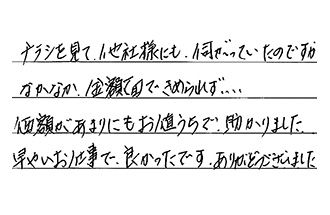 チラシを見て、他社様にも、伺がっていたのですが
なかなか、金額面で、きめられず....
価額があまりにもお値うちで、助かりました
早やいお仕事で、良かったです。ありがとうございました